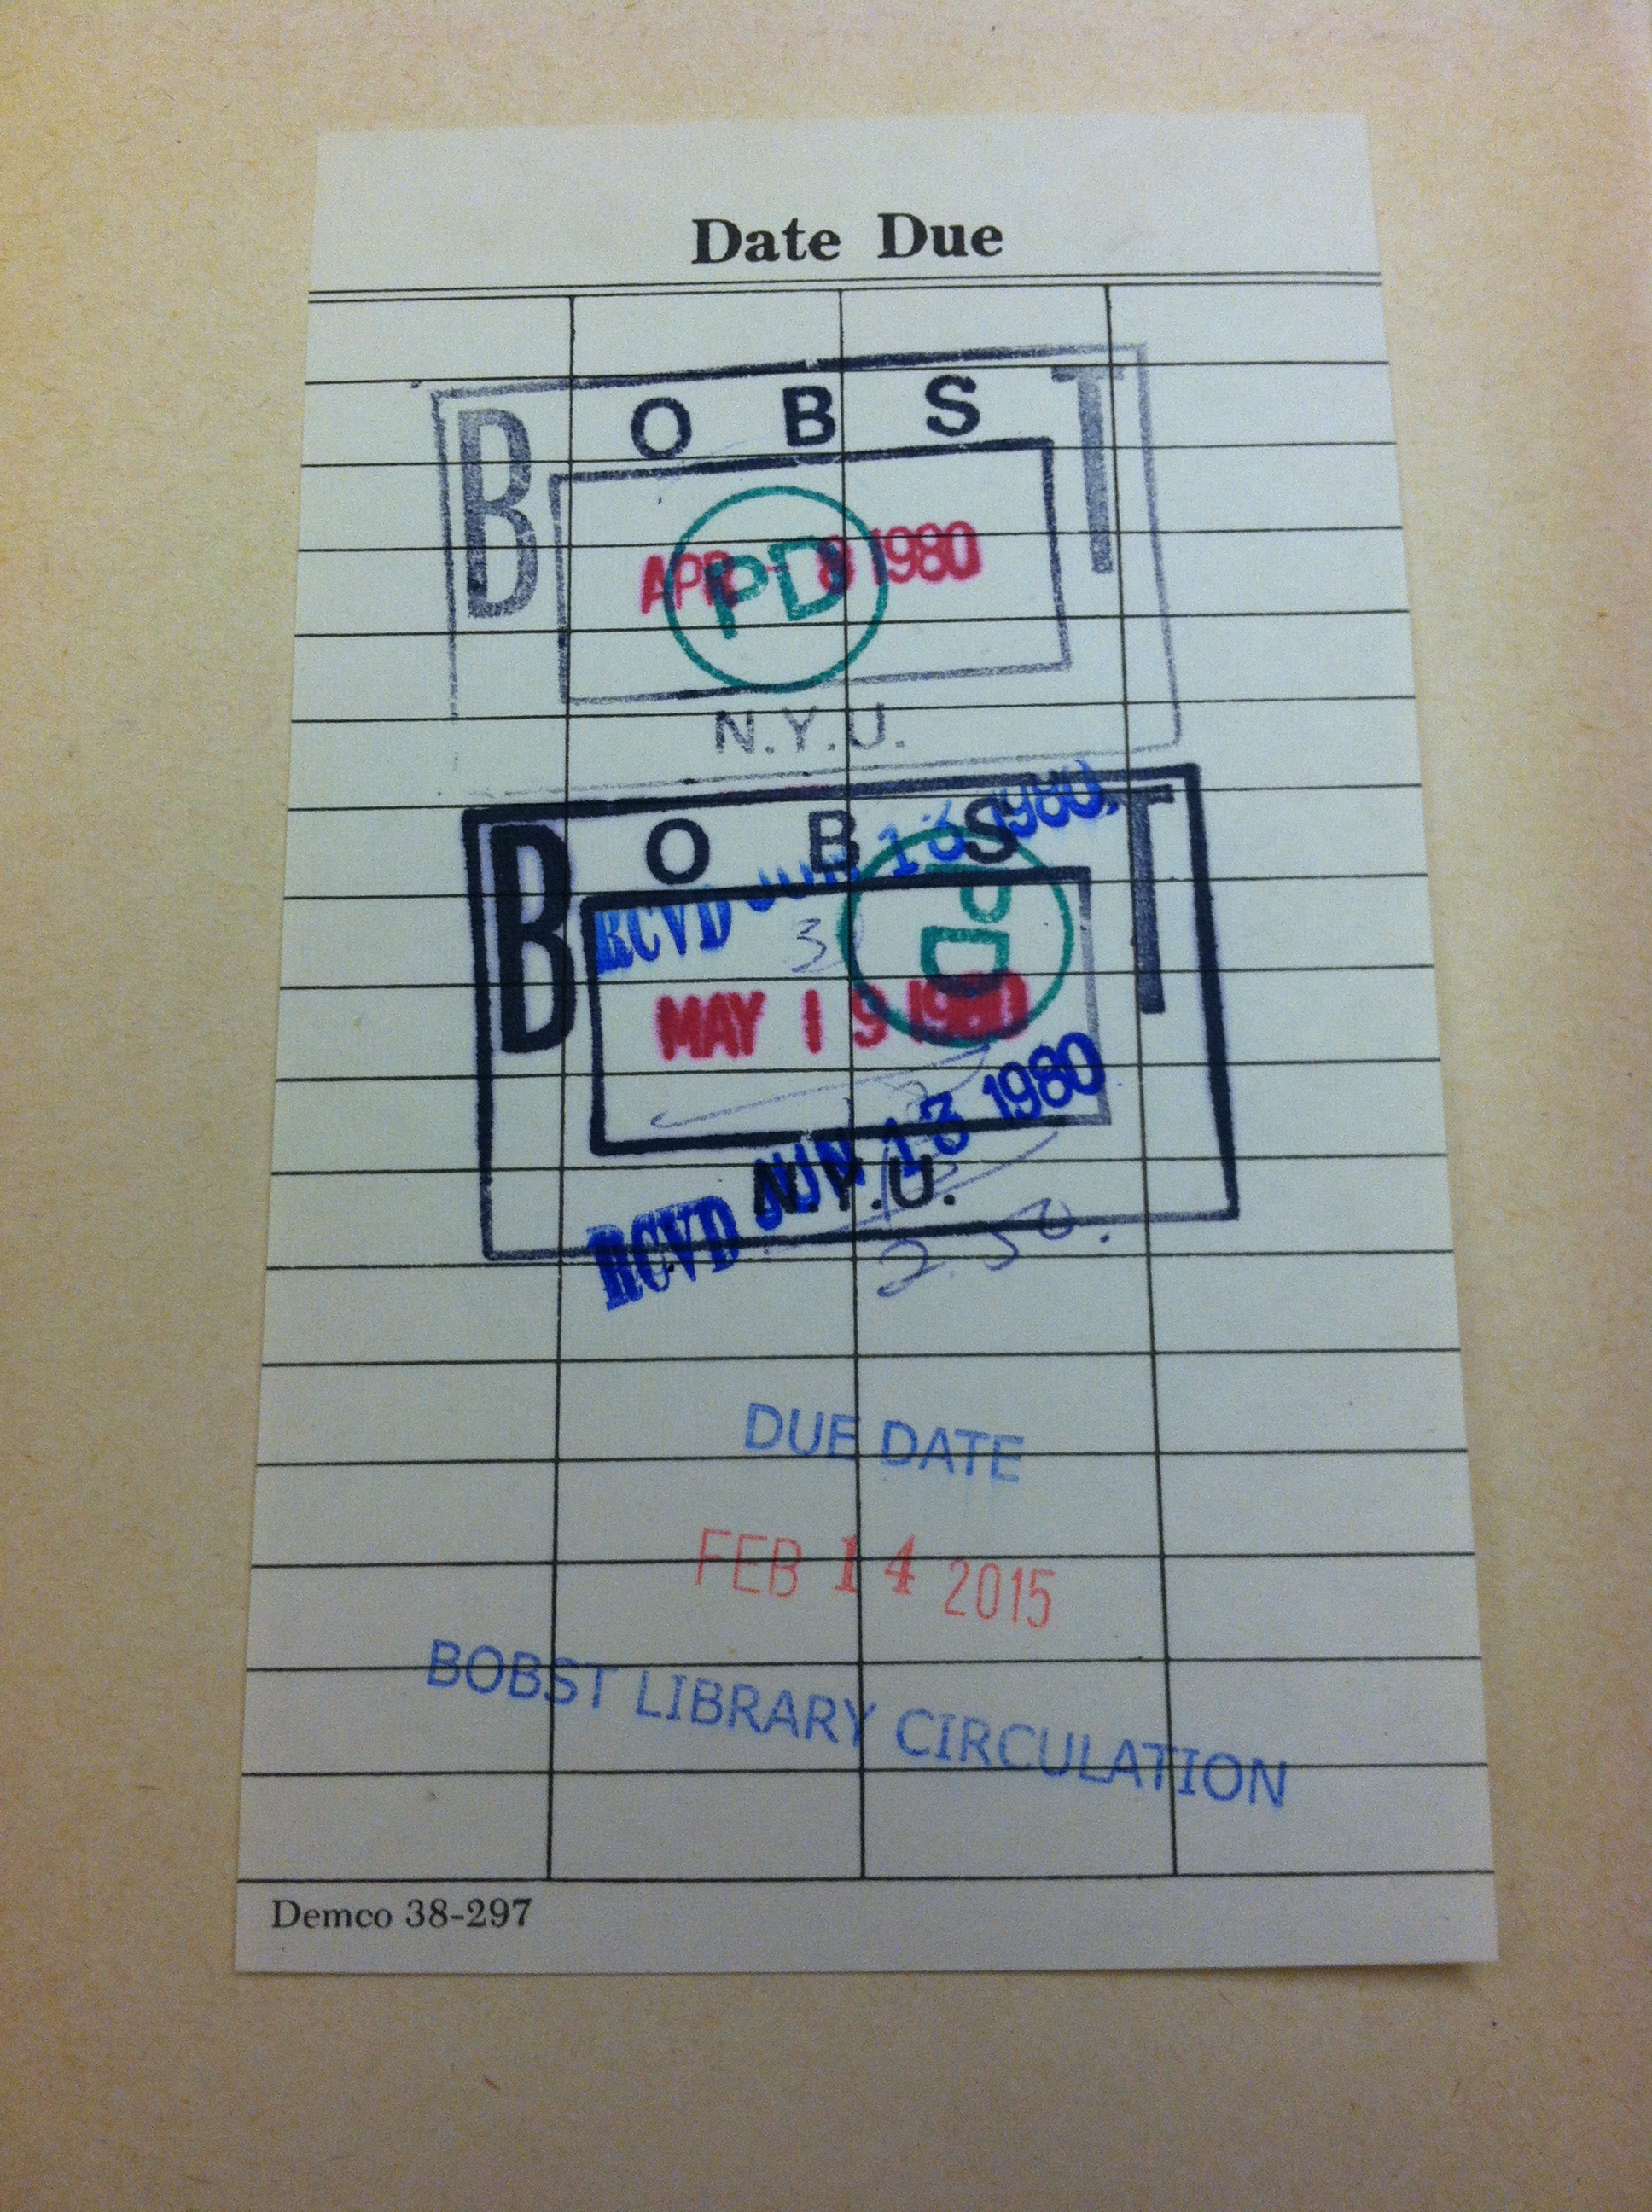 Date Due
B O B S T
APR - 8 1980
PD
N.Y.U.
B O B S T
RCVD JUN 13 1980
3
PD
MAY 19 1980
RCVD JUN 13 1980
N.Y.U.
2.50.
DUE DATE
FEB 14 2015
BOBST LIBRARY CIRCULATION
Demco 38-297